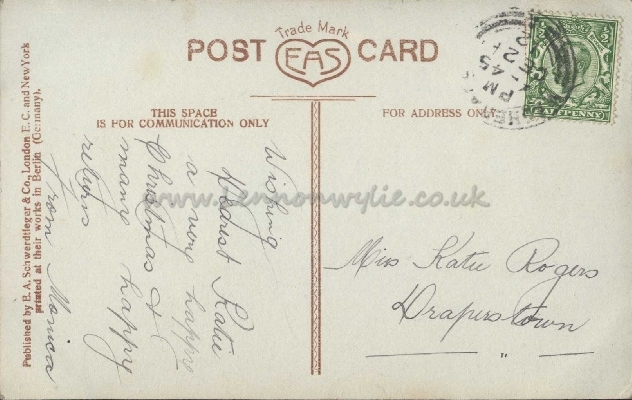 Trade Mark
POST CARD
EAS
THIS SPACE
IS FOR COMMUNICATION ONLY
FOR ADDRESS ONLY
Published by E. A. Schwerdtfeger & Co., London E. C. and New York
printed at their works in Berlin (Germany).
Wishing
Dearest Katie
a very happy
Christmas &
many happy
returns
from Monica
Miss Katie Rogers
Draperstown
"
PM
45
PENNY
www.lennonwylie.co.uk